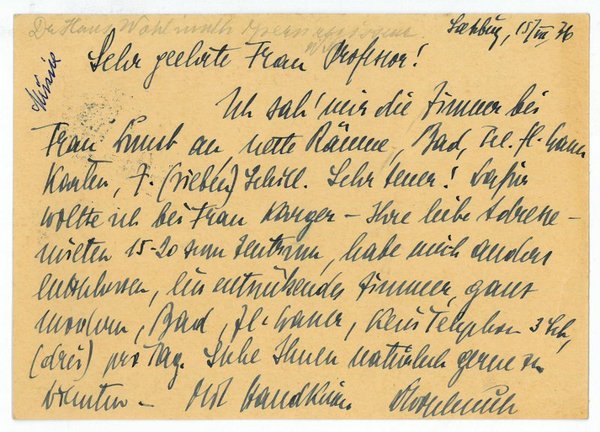 Dr Hans Wohlmuth Opernregisseur
Wien
Salzburg, 15/VII 36
Sehr geehrte Frau Professor!
Ich sah' mir die Zimmer bei
Frau an, nette Räume, Bad, Tel. fl. Wasser
Kosten, 7. (sieben) Schill. Sehr teuer! Dafür
wollte ich bei Frau Karger – Ihre liebe Adresse –
mieten 15-20 zum Zentrum, habe mich anders
entschlossen, ein entzückendes Zimmer, ganz
modern, Bad, Fl. Wasser, kein Telephon 3 Sch,
(drei) pro Tag. Stehe Ihnen natürlich gerne zu
Diensten – Mit Handkuss Wohlmuth